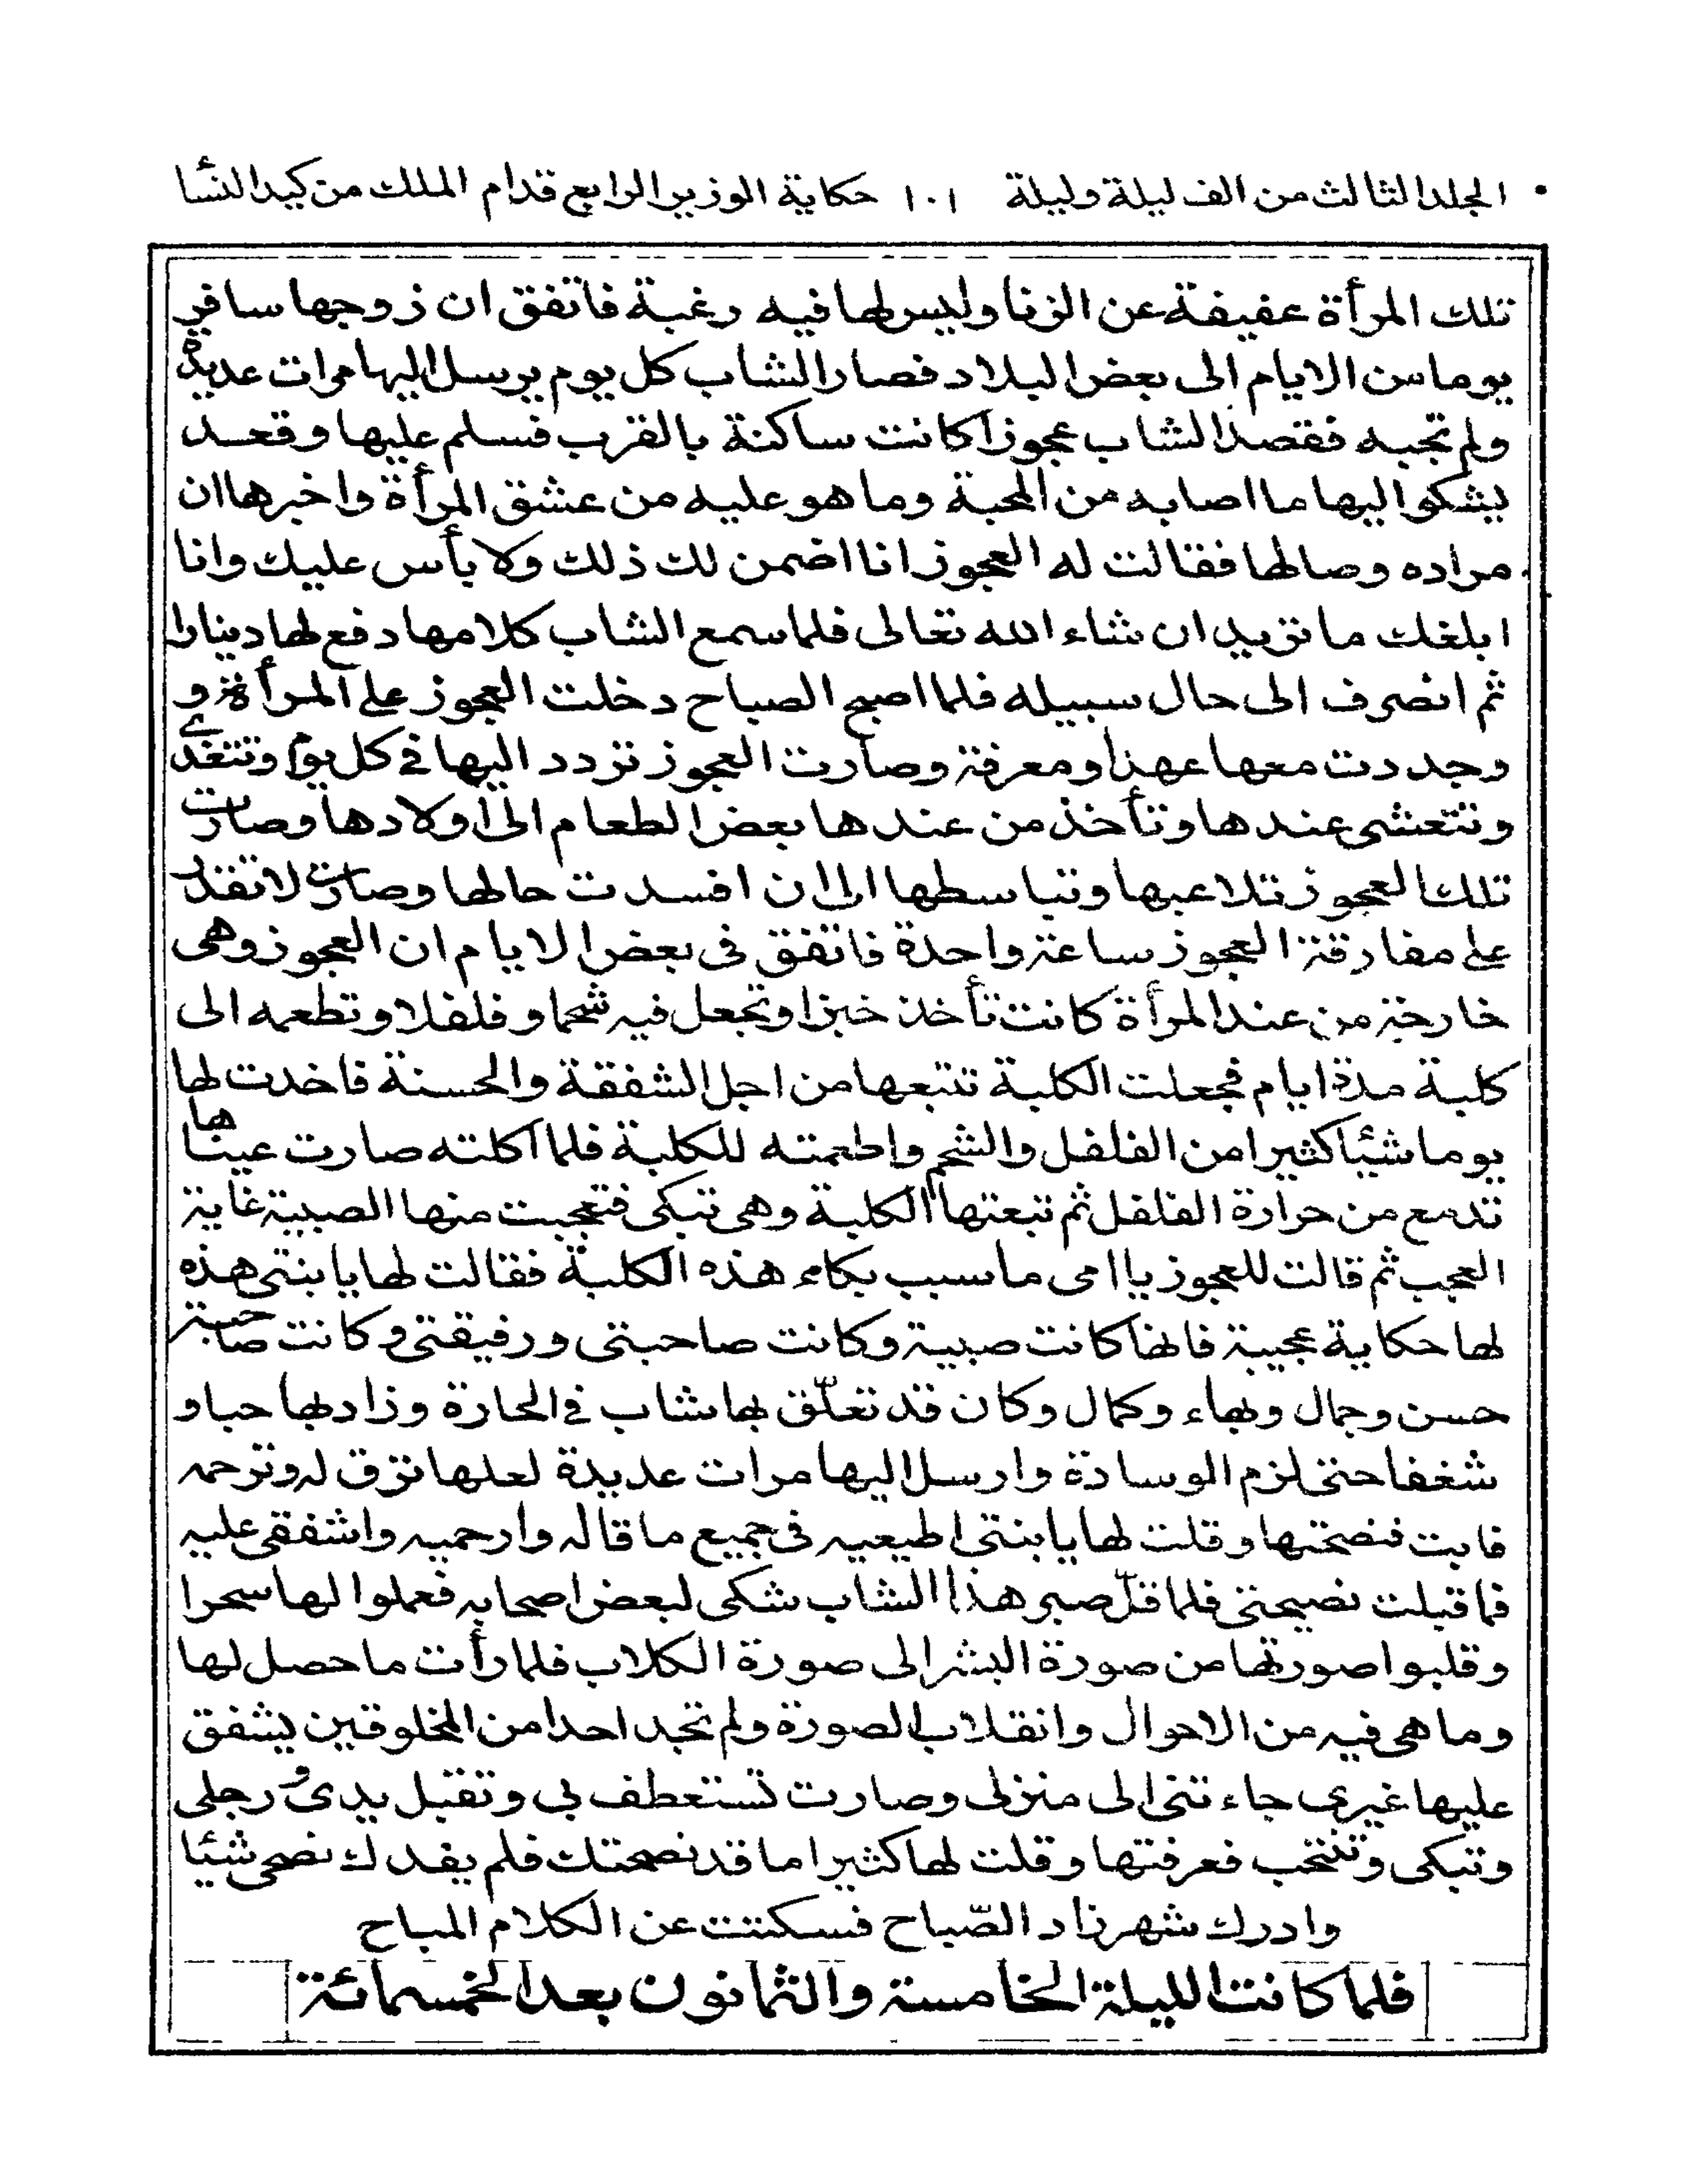 الجلد الثالث من الف ليلة وليلة ١٠١ حكاية الوزير الرابع قدام الملك من كيد النسأ
تلك المرأة عفيفة عن الزنا وليس لها فيه رغبة فاتفق ان زوجها سافر
يوما من الايام الى بعض البلاد فصار الشاب كل يوم يرسل اليها مرات عديدة
ولم تجبه فقصد الشاب عجوزا كانت ساكنة بالقرب فسلم عليها وقعد
يشكو اليها ما اصابه من المحبة وما هو عليه من عشق المرأة واخبرها ان
مراده وصالها فقالت له العجوز انا اضمن لك ذلك ولا بأس عليك وانا
ابلغك ما تزيد ان شاء الله تعالى فلما سمع الشاب كلامها دفع لها دينارا
ثم انصرف الى حال سبيله فلما اصبح الصباح دخلت العجوز على المرأة و
وجددت معها عهدا ومعرفة وصارت العجوز تزدد اليها فى كل يوم وتتغدى
وتتعشى عندها وتأخذ من عندها بعض الطعام الى اولادها وصارت
تلك العجوز تلاعبها وتباسطها الى ان افسدت حالها وصارت لا تقدر
على مفارقة العجوز ساعة واحدة فاتفق فى بعض الايام ان العجوز وهى
خارجة من عند المرأة كانت تأخذ خبزا وتجعل فيه شحما وفلفلا وتطعمه الى
كلبة مدة ايام فجعلت الكلبة تتبعها من اجل الشفقة والحسنة فاخدت لها
يوما شيئا كثيرا من الفلفل والشحم واطعمته للكلبة فلما اكلته صارت عيناها
تدمع من حرارة الفلفل ثم تبعتها الكلبة وهى تبكى فتعجبت منها الصبية غاية
العجب ثم قالت للعجوز يا امى ما سبب بكاء هذه الكلبة فقالت لها يا بنتى هذه
لها حكاية عجيبة فانها كانت صبية وكانت صاحبتى ورفيقتى وكانت صاحبة
حسن وجمال وبهاء وكمال وكان قد تعلّق بها شاب فى الحارة وزاد بها حبا و
شغفا حتى لزم الوسادة وارسل اليها مرات عديدة لعلها ترق له وترحمه
فابت فنصحتها وقلت لها يا بنتى اطيعيه فى جميع ما قاله وارحميه واشفقى عليه
فما قبلت نصيحتى فلما قلّ صبر هذا الشاب شكى لبعض اصحابه فعملوا لها سحرا
وقلبوا صورتها من صورة البشر الى صورة الكلاب فلما رأت ما حصل لها
وما هى فيه من الاحوال وانقلاب الصورة ولم تجد احدا من المخلوقين يشفق
عليها غيرى جاءتنى الى منزلى وصارت تستعطف بى وتقبل يدى ورجلى
وتبكى وتنتحب فعرفتها وقلت لها كثيرا ما قد نصحتك فلم يفدك نصحى شئا
وادرك شهرزاد الصّباح فسكتت عن الكلام المباح
فلما كانت الليلة الخامسة والثمانون بعد الخمسمائة